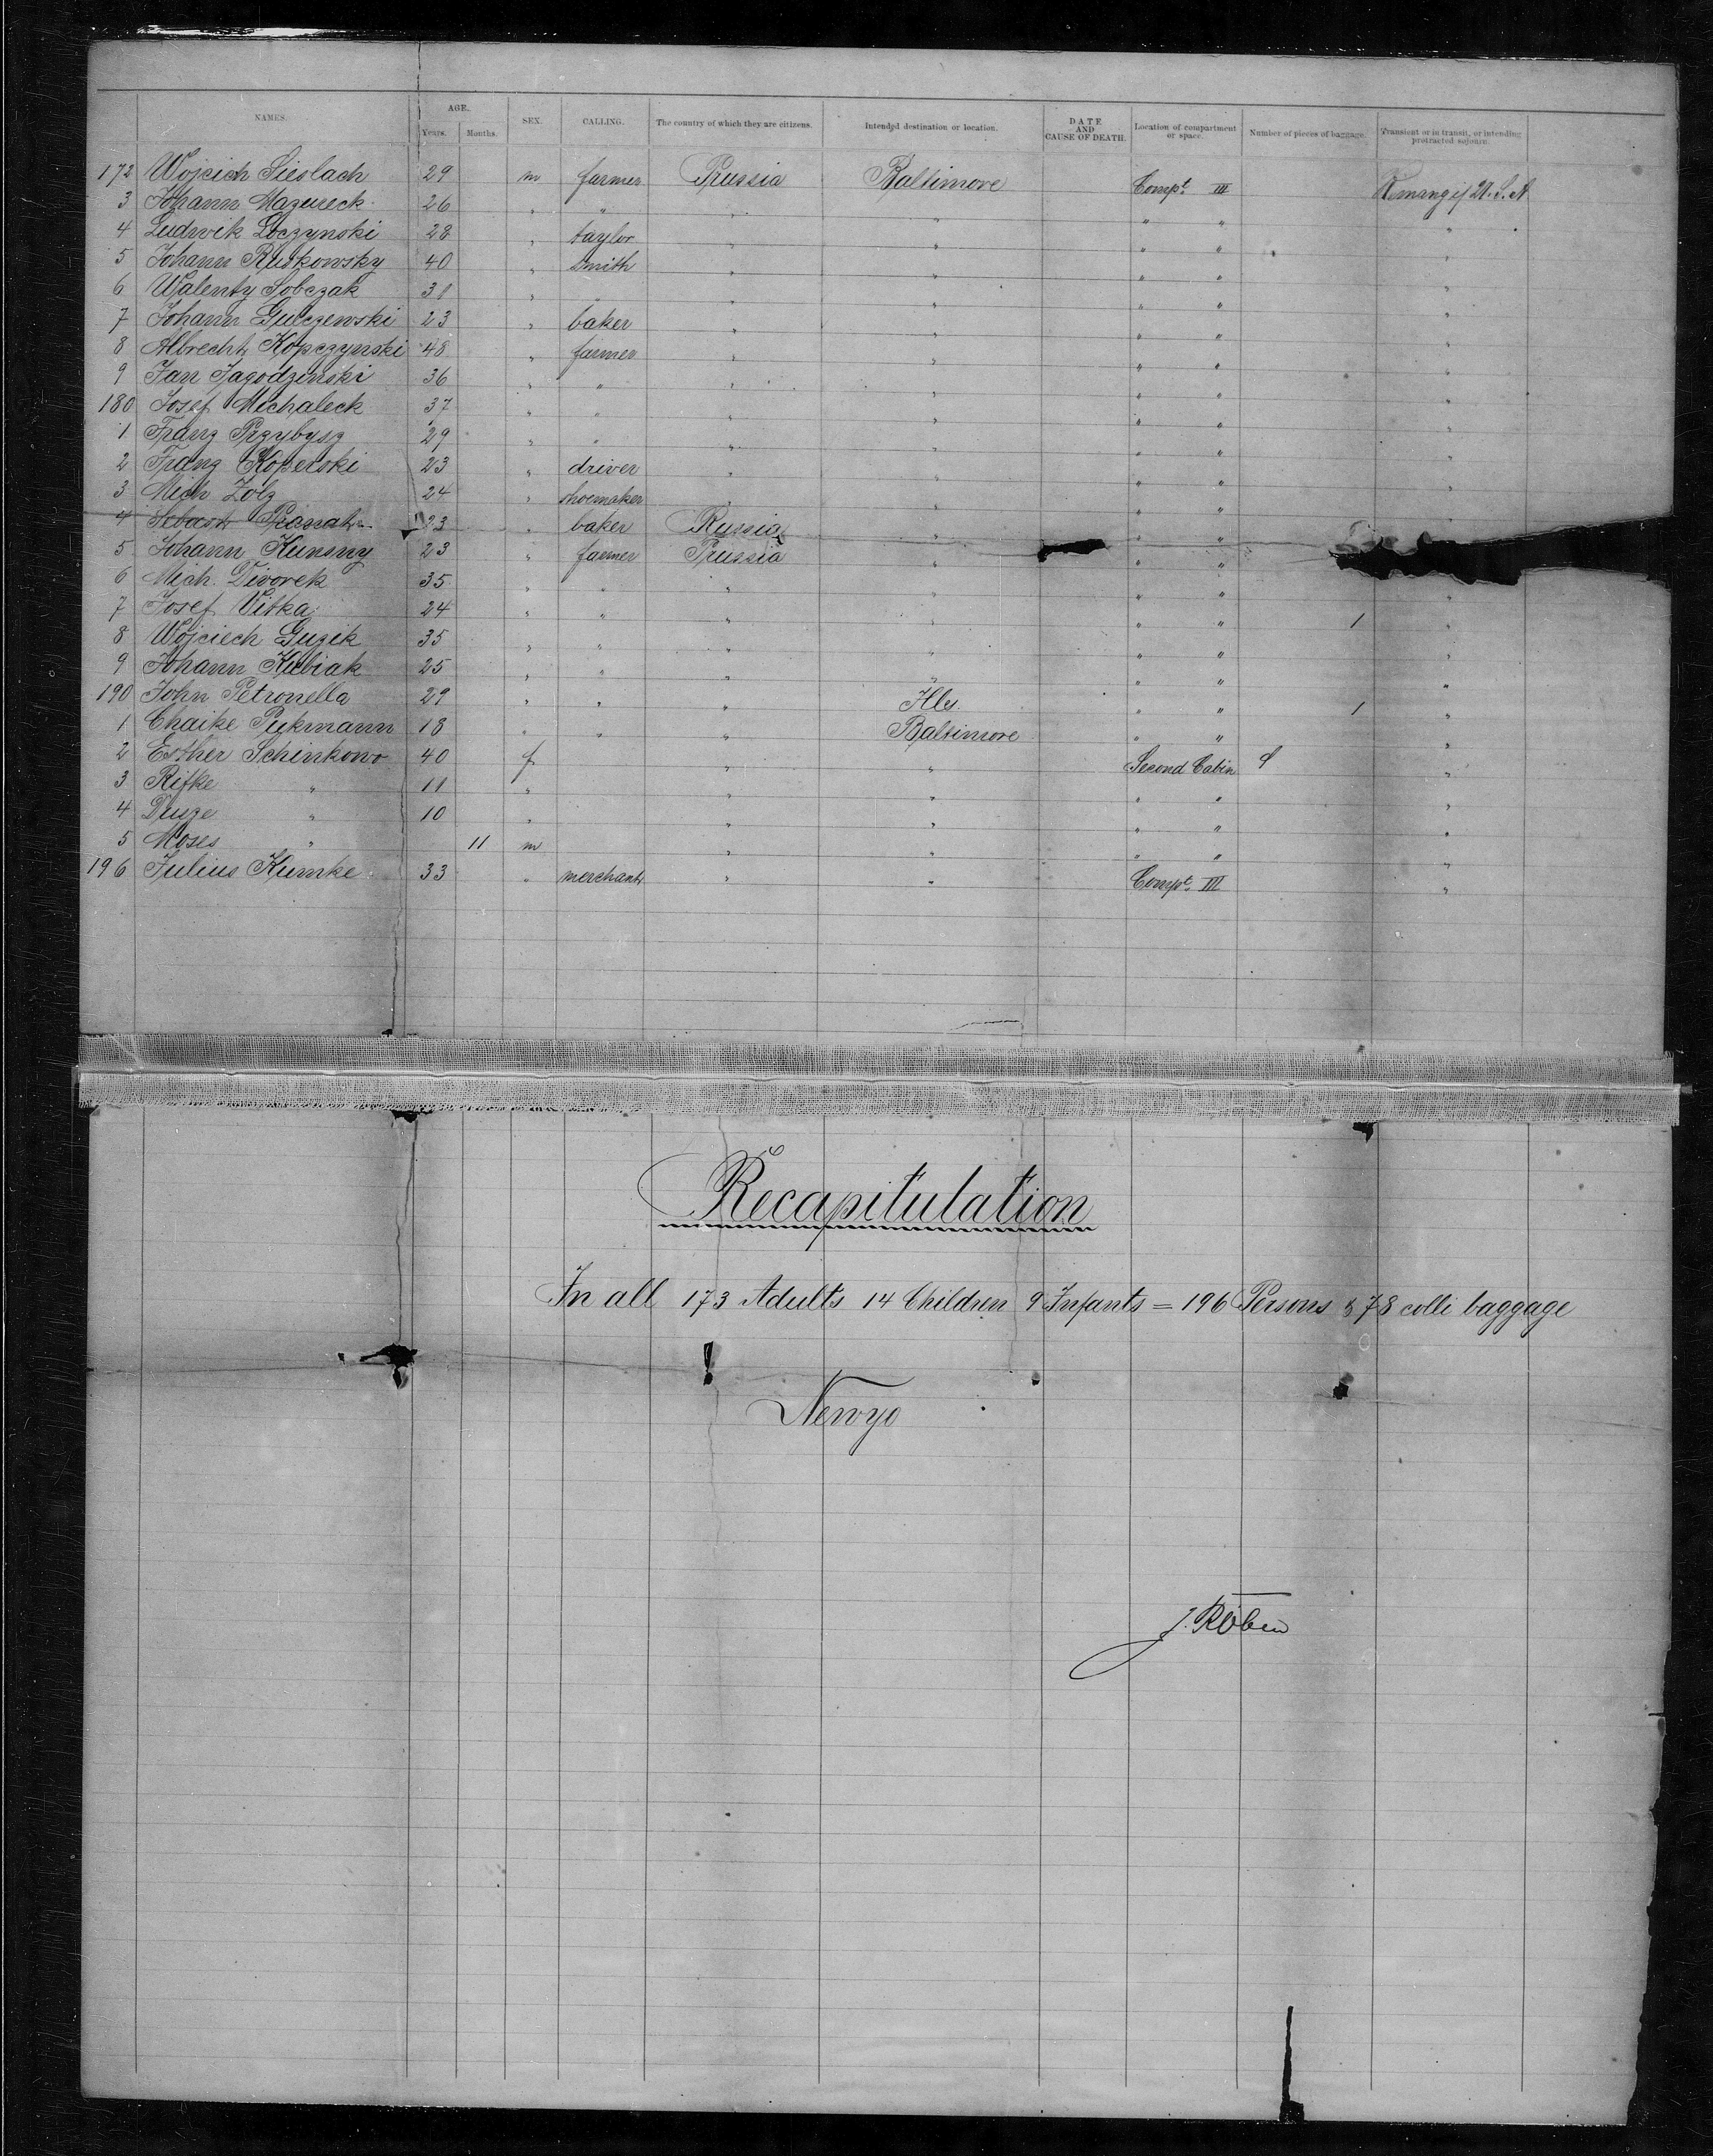 NAMES. AGE. Years. Months. SEX. CALLING. The country of which they are citizens. Intended destination or location. DATE AND CAUSE OF DEATH. Location of compartment or space. Number of pieces of baggage. Transient or in transit, or intending protracted sojourn.
172 Wojcich Sieslach 29 m farmer Prussia Baltimore Compt III U.S.A
3 Johann Mazureck 26 " " " " " " "
4 Ludwik Loczynski 28 " taylor " " " " "
5 Johann Ruskowsky 40 " smith " " " " "
6 Walenty Sobczak 31 " " " " " " "
7 Johann Gulczewski 23 " baker " " " " "
8 Albrecht Kopczynski 48 " farmer " " " " "
9 Jan Jagodzinski 36 " " " " " " "
180 Josef Michaleck 37 " " " " " " "
1 Franz Przybysz 29 " " " " " " "
2 Franz Koperski 23 " driver " " " " "
3 Mich Zolz 24 " shoemaker " " " " "
4 Sebast 23 " baker Russia " " "
5 Johann Kunsmy 23 " farmer Prussia " " "
6 Mich. Divorek 35 " " " " " " "
7 Josef Vitka 24 " " " " " " 1 "
8 Wojciech Guzik 35 " " " " " " "
9 Johann Kubiak 25 " " " " " " "
190 John Petronella 29 " " " Ills. " " 1 "
1 Chaike Pukmann 18 " " " Baltimore " " "
2 Esther Schinkowo 40 f " " Second Cabin 4 "
3 Rifke " 11 " " " " " "
4 Druze " 10 " " " " " "
5 Moses " 11 m " " " " "
196 Julius Kumke 33 " merchant " " Compt. III "
Recapitulation
In all 173 Adults 14 Children 9 Infants = 196 Persons & 78 colli baggage
Newyo
J. Röben